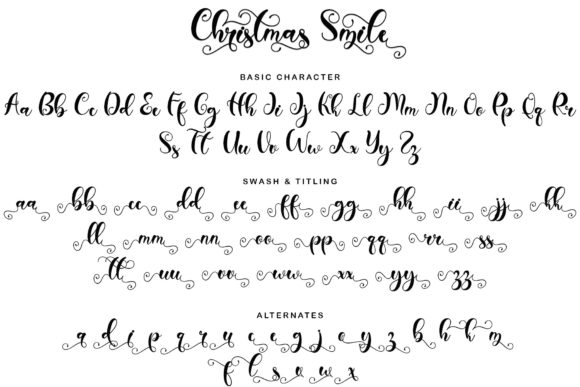 Christmas Smile
BASIC CHARACTER
Aa Bb Cc Dd Ee Ff Gg Hh Ii Jj Kk Ll Mm Nn Oo Pp Qq Rr
Ss Tt Uu Vv Ww Xx Yy Zz
SWASH & TITLING
aa bb cc dd ee ff gg hh ii jj kk
ll mm nn oo pp qq rr ss
tt uu vv ww xx yy zz
ALTERNATES
a d i p q r u c e g j o y z b h k m
f l s v w x